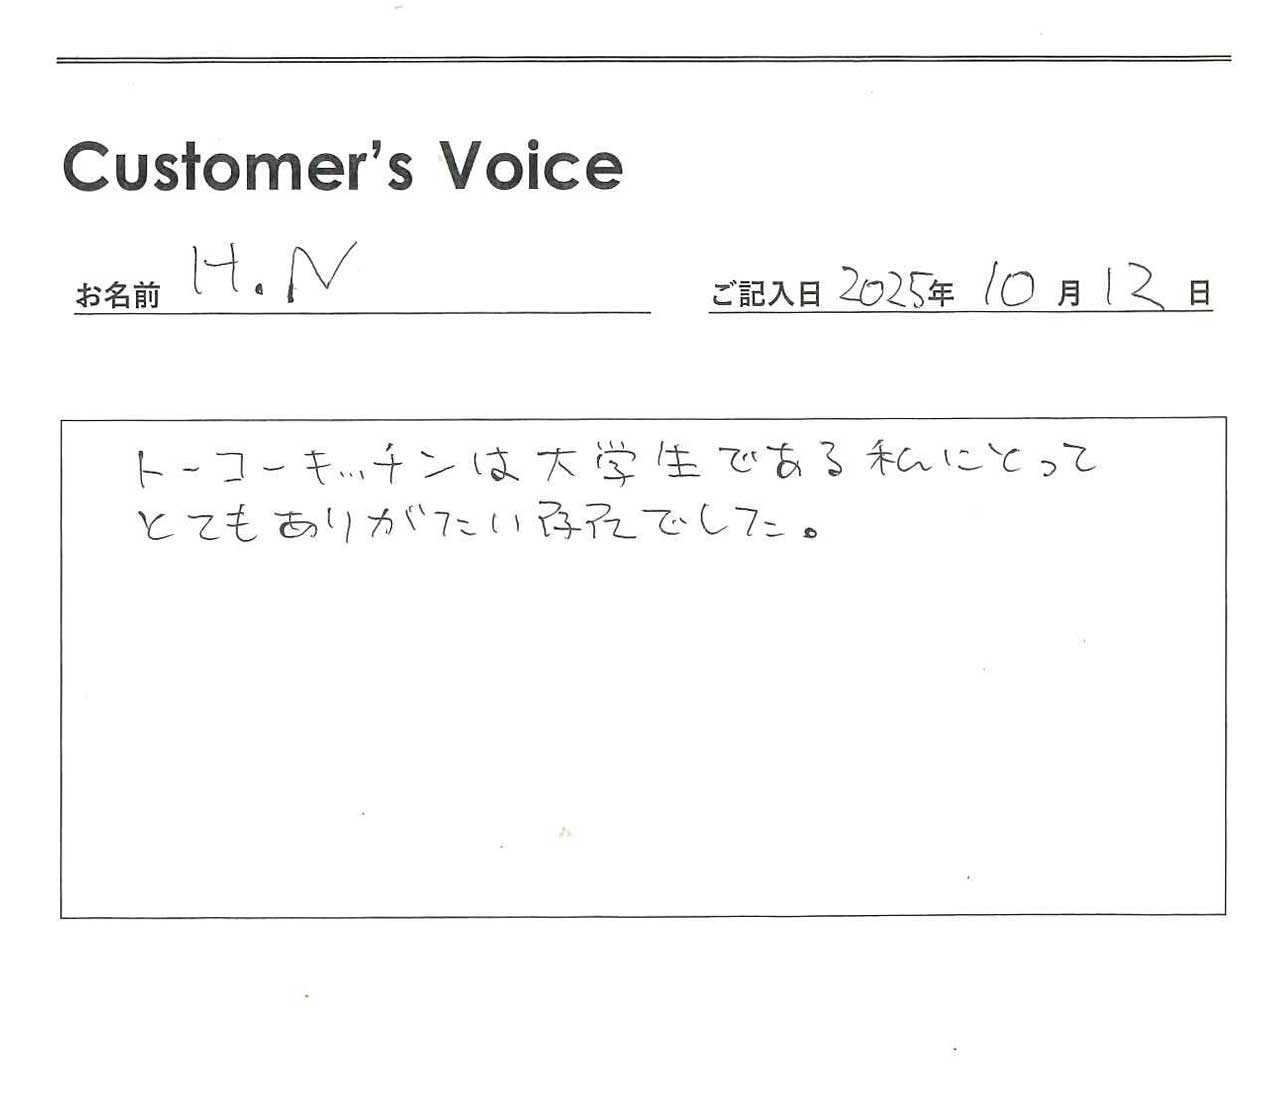 Customer's Voice
お名前 H.N
ご記入日 2025年 10月 12日
トーコーキッチンは大学生である私にとって
とてもありがたい存在でした。